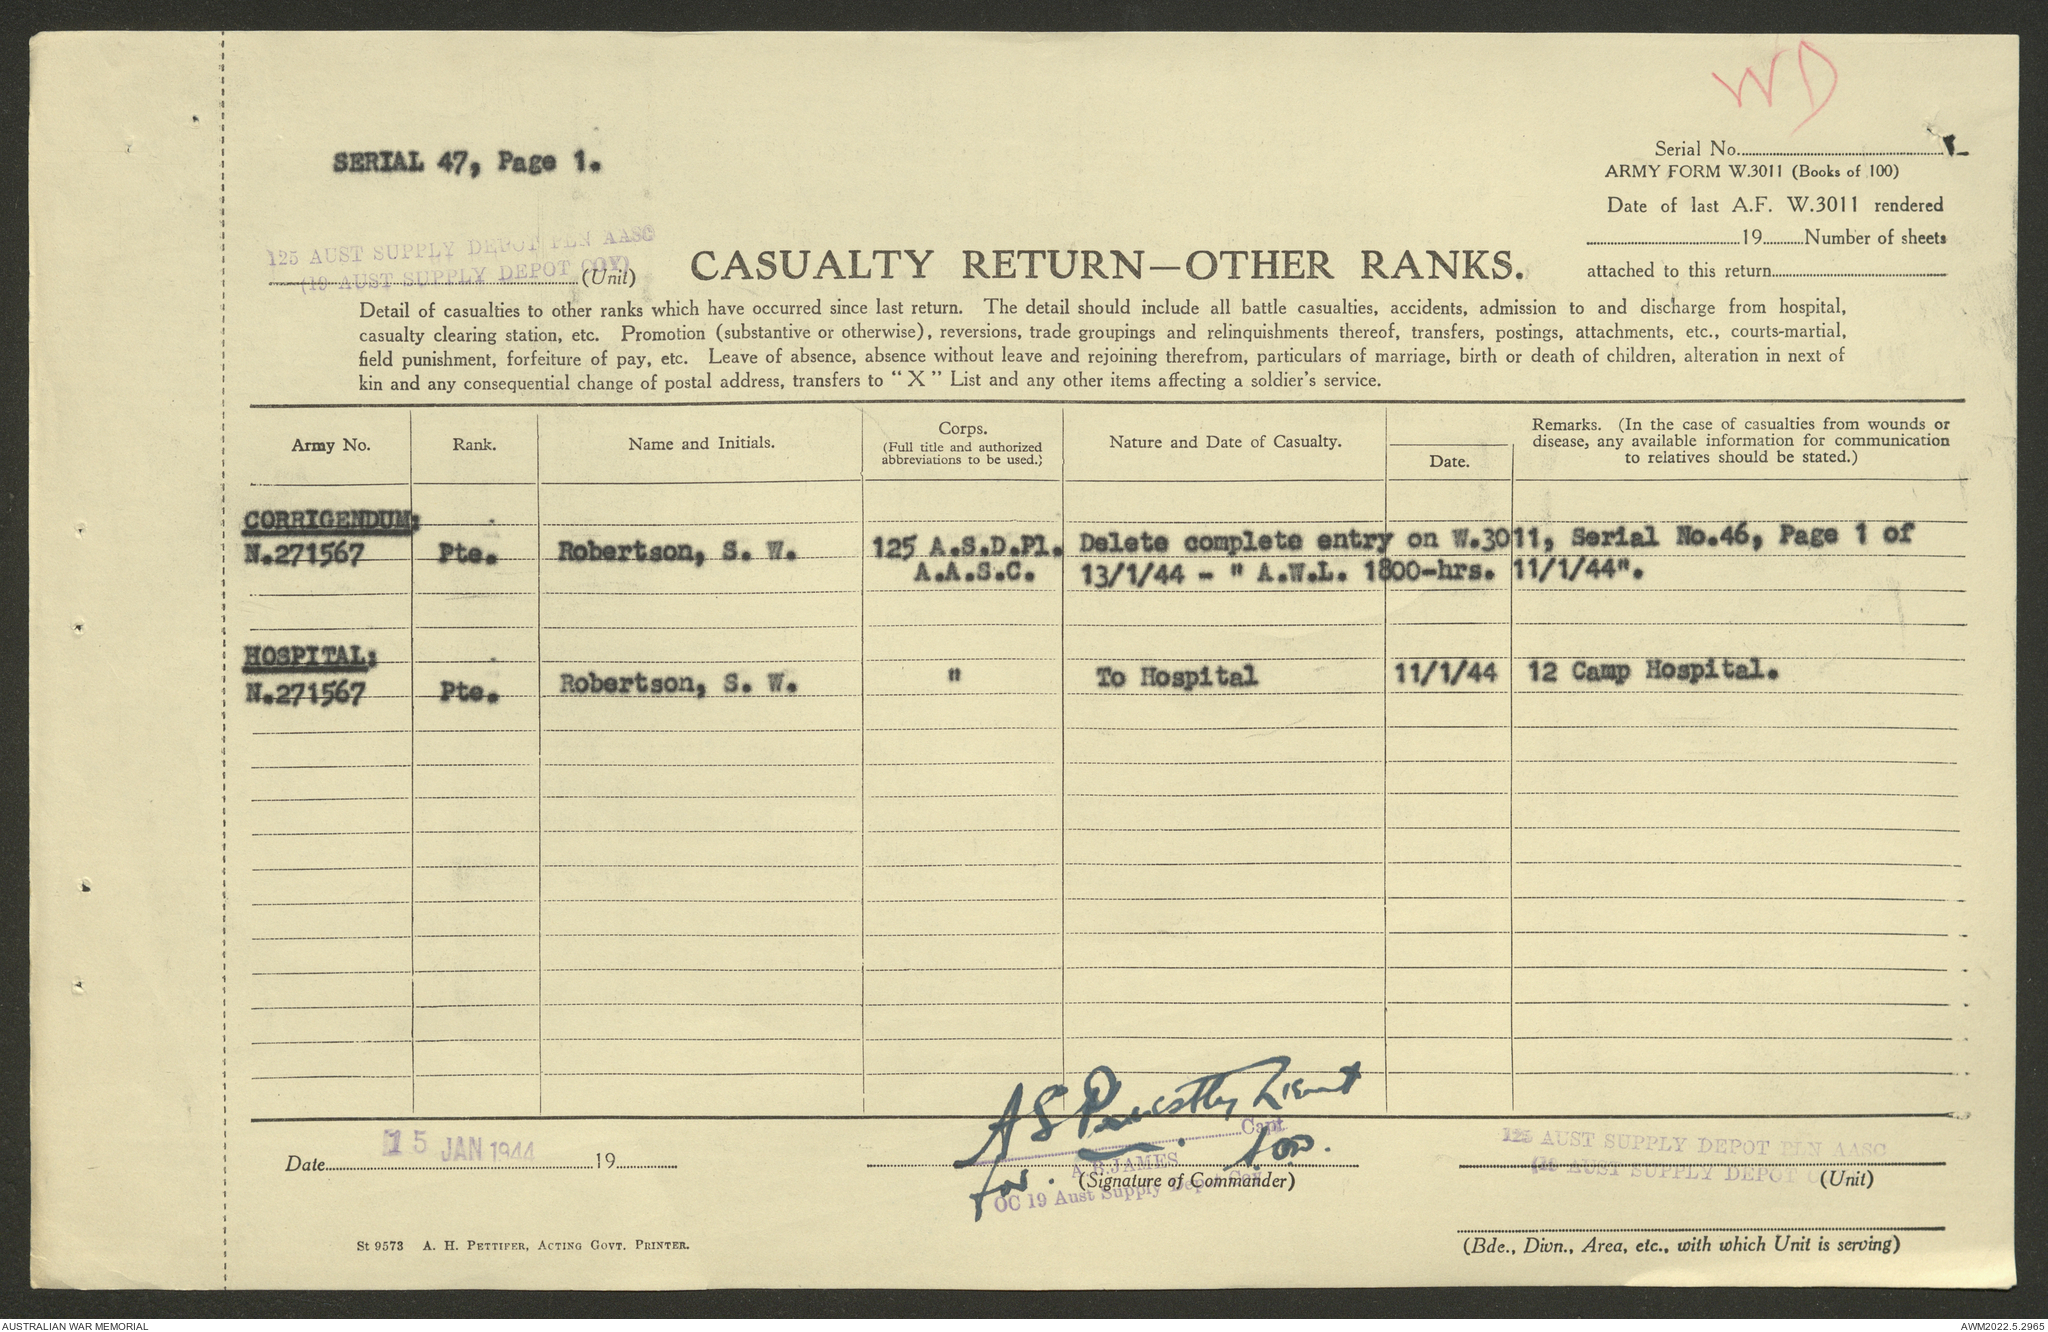 WD
SERIAL 47, Page 1.
Serial No.
ARMY FORM W.3011 (Books of 100)
Date of last A.F. W.3011 rendered
19 Number of sheets
attached to this return
125 AUST SUPPLY DEPOT PLN AASC
(19 AUST SUPPLY DEPOT COY)
(Unit)
CASUALTY RETURN—OTHER RANKS.
Detail of casualties to other ranks which have occurred since last return. The detail should include all battle casualties, accidents, admission to and discharge from hospital,
casualty clearing station, etc. Promotion (substantive or otherwise), reversions, trade groupings and relinquishments thereof, transfers, postings, attachments, etc., courts-martial,
field punishment, forfeiture of pay, etc. Leave of absence, absence without leave and rejoining therefrom, particulars of marriage, birth or death of children, alteration in next of
kin and any consequential change of postal address, transfers to "X" List and any other items affecting a soldier's service.
Army No.
Rank.
Name and Initials.
Corps.
(Full title and authorized
abbreviations to be used.)
Nature and Date of Casualty.
Date.
Remarks. (In the case of casualties from wounds or
disease, any available information for communication
to relatives should be stated.)
CORRIGENDUM:
N.271567 Pte. Robertson, S. W. 125 A.S.D.Pl. Delete complete entry on W.3011, Serial No.46, Page 1 of
A.A.S.C. 13/1/44 - " A.W.L. 1800-hrs. 11/1/44".
HOSPITAL:
N.271567 Pte. Robertson, S. W. " To Hospital 11/1/44 12 Camp Hospital.
A S Priestley Lieut
Capt
Date 15 JAN 1944 19
for.
A.R.JAMES
(Signature of Commander)
OC 19 Aust Supply Depot Coy
125 AUST SUPPLY DEPOT PLN AASC
(19 AUST SUPPLY DEPOT
(Unit)
St 9573 A. H. PETTIFER, ACTING GOVT. PRINTER.
(Bde., Divn., Area, etc., with which Unit is serving)
AUSTRALIAN WAR MEMORIAL
AWM2022.5.2965